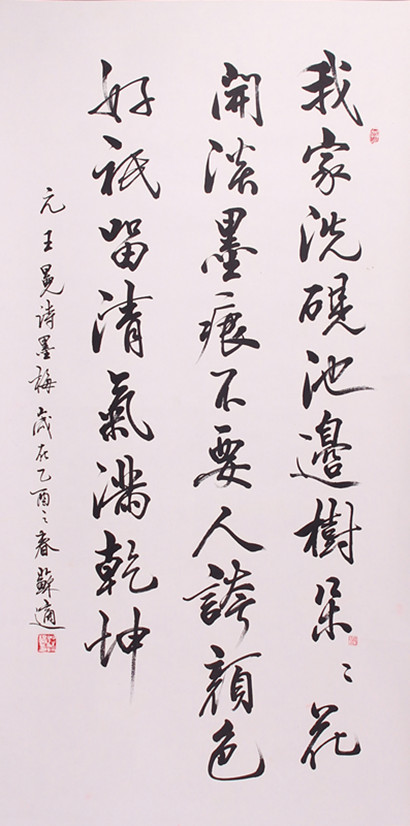 我家洗硯池邊樹朵〻花
開淡墨痕不要人誇顏色
好祇留清氣滿乾坤
元王冕詩墨梅歲在乙酉之春蘇適